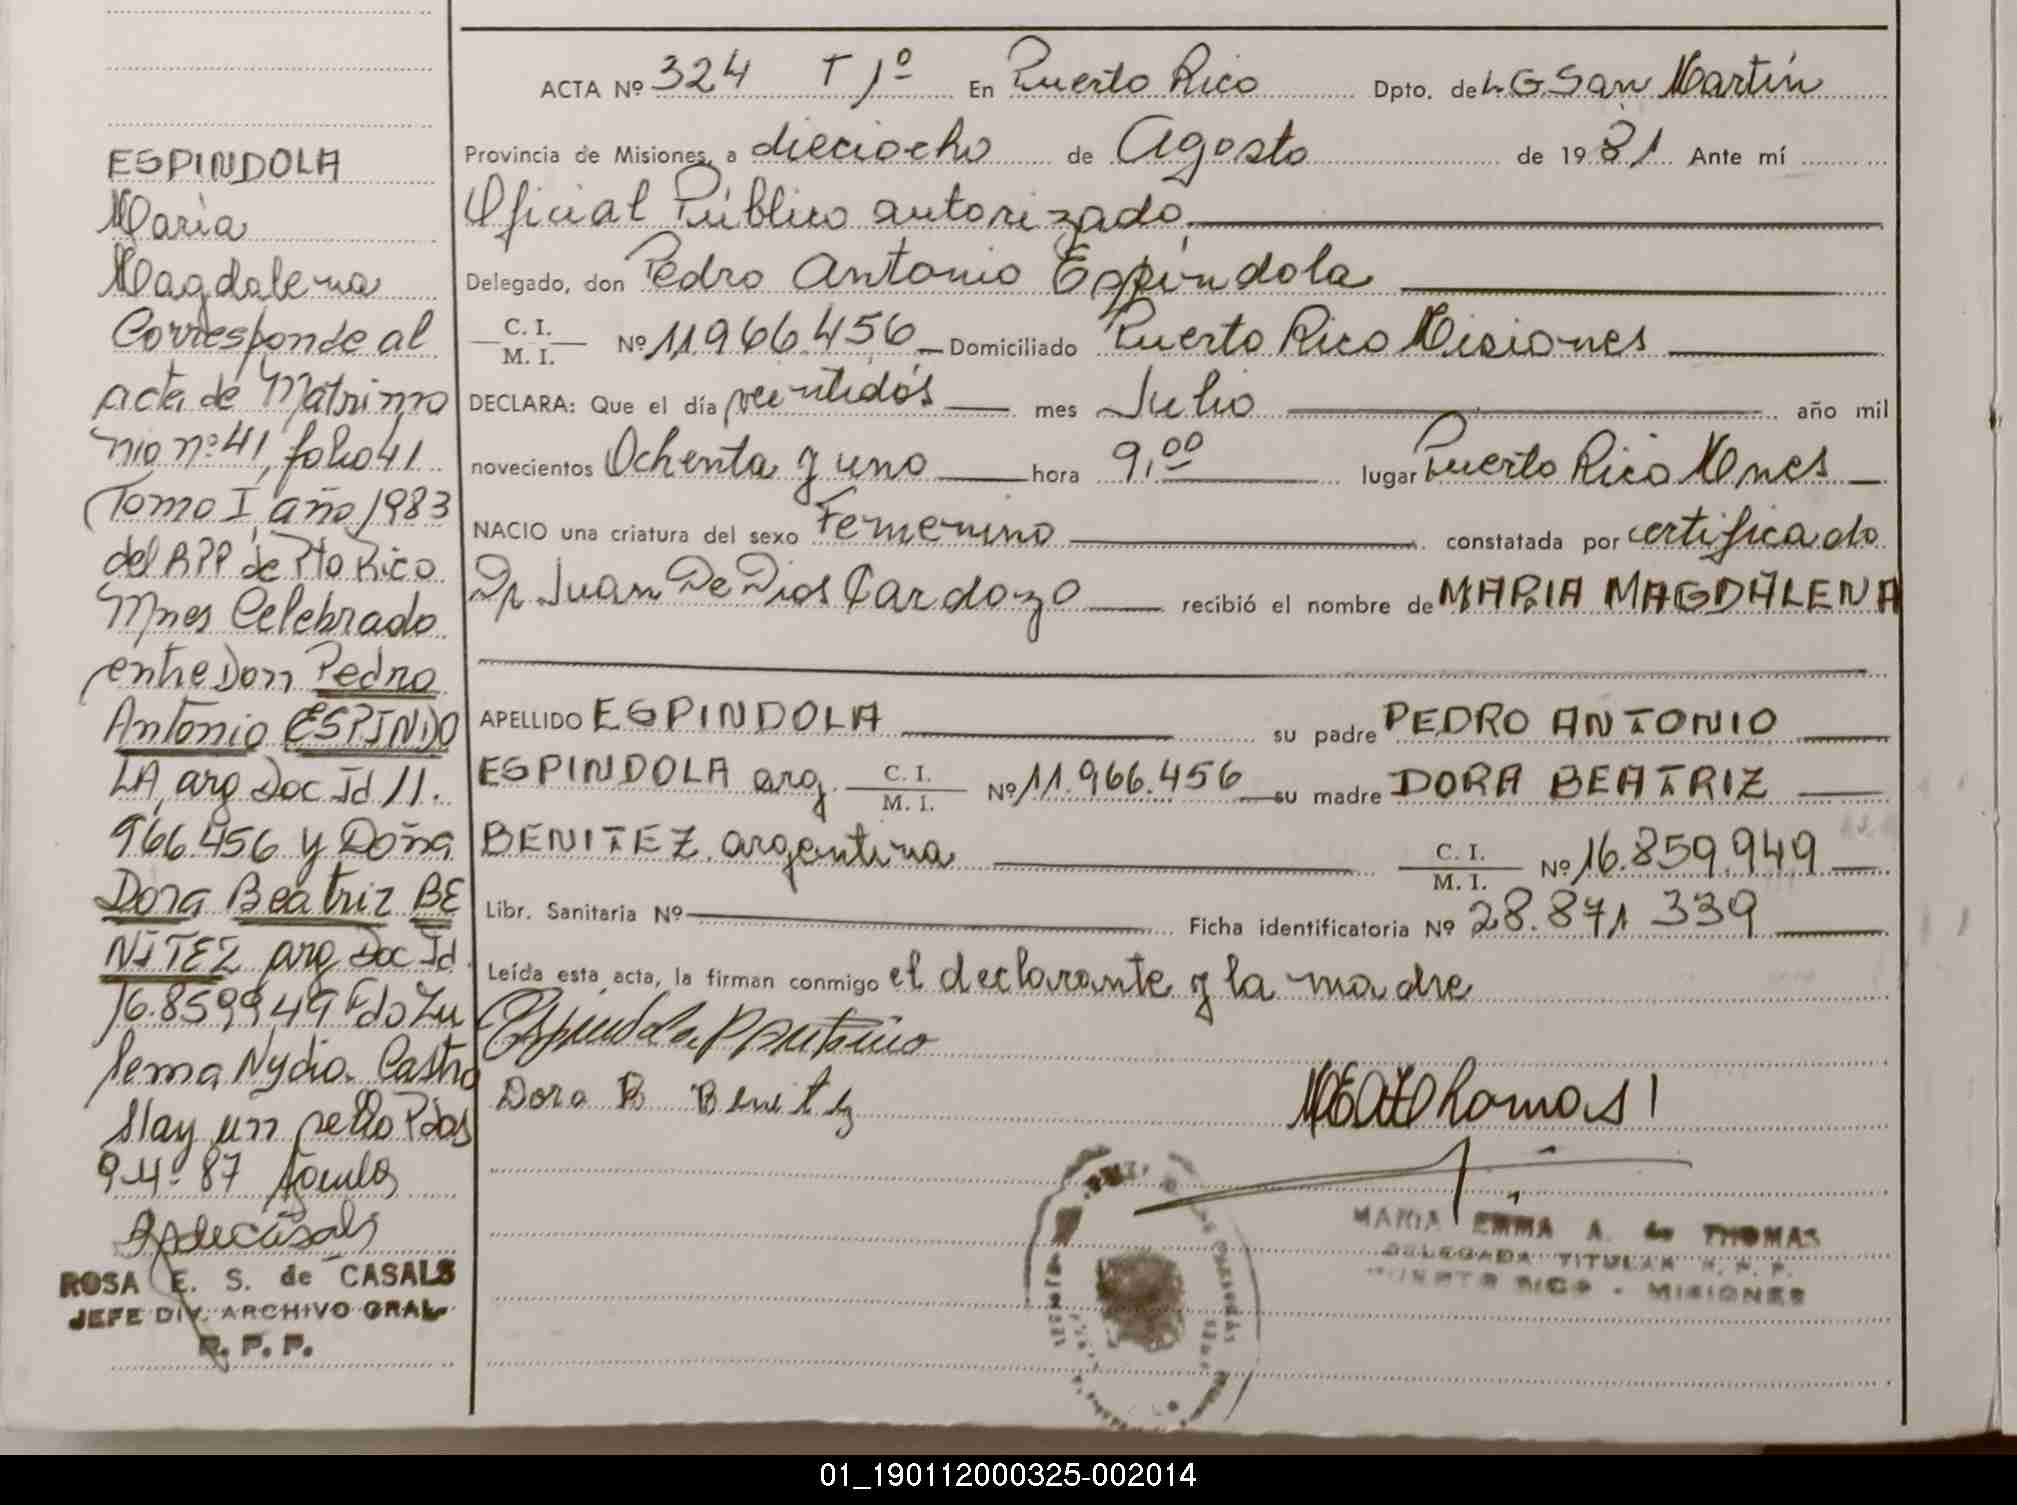 ESPINDOLA
Maria
Magdalena
Corresponde al
acta de Matrimo
nio nº 41, folio 41
Tomo I, año 1983
del RPP de Pto Rico
Mnes Celebrado
entre Don Pedro
Antonio ESPINDO
LA, arg Doc Id 11.
966.456 y Doña
Dora Beatriz BE
NITEZ arg Doc Id
16.859949 Fdo Zu
lema Nydia Castro
Hay un sello Pdas
9-4-87
ROSA E. S. de CASALS
JEFE DIV. ARCHIVO GRAL
R. P. P.
ACTA Nº 324 T 1º En Puerto Rico Dpto. de L G San Martín
Provincia de Misiones, a dieciocho de Agosto de 1981 Ante mí
Oficial Público autorizado,
Delegado, don Pedro Antonio Espíndola
C. I. M. I. Nº 11.966.456 Domiciliado Puerto Rico Misiones
DECLARA: Que el día veintidós mes Julio año mil
novecientos Ochenta y uno hora 9,00 lugar Puerto Rico Mnes
NACIO una criatura del sexo Femenino constatada por certificado
Dr Juan De Dios Cardozo recibió el nombre de MARIA MAGDALENA
APELLIDO ESPINDOLA su padre PEDRO ANTONIO
ESPINDOLA arg. C. I. M. I. Nº 11.966.456 su madre DORA BEATRIZ
BENITEZ, argentina C. I. M. I. Nº 16.859.949
Libr. Sanitaria Nº Ficha identificatoria Nº 28.871 339
Leída esta acta, la firman conmigo el declarante y la madre
Espindola P Antonio
Dora B Benitez
MARIA EMMA A. de THOMAS
DELEGADA TITULAR R. P. P.
PUERTO RICO - MISIONES
01_190112000325-002014